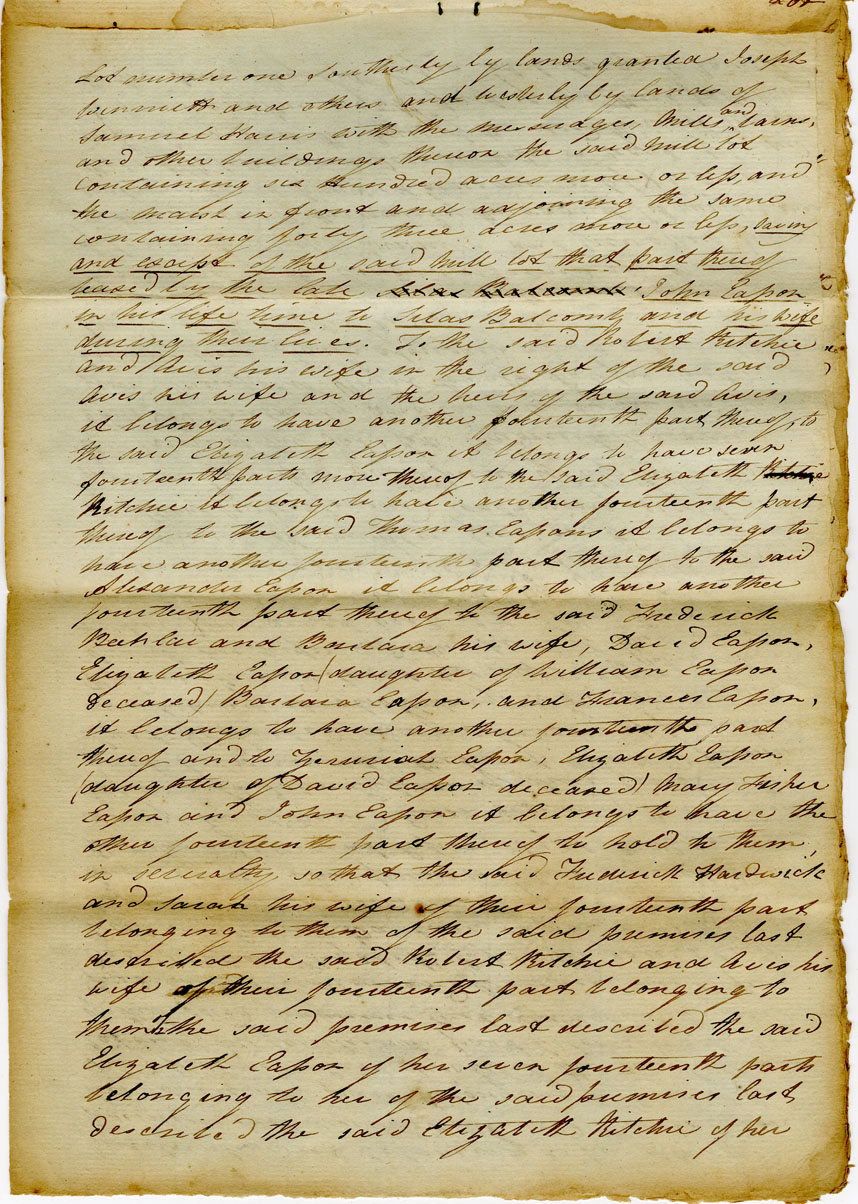 Lot number one Southerly by lands granted Joseph
Winniett and others and Westerly by lands of
Samuel Harris with the messuages, Mills and barns,
and other buildings thereon the said Mill lot
containing six Hundred acres more or less, and
the marsh in front and adjoining the same
containing forty three acres more or less, saving
and except of the said Mill lot that part thereof
leased by the late Silas Balcomb John Easson
in his life time to Silas Balcomb and his wife
during their lives. To the said Robert Ritchie
and Avis his wife in the right of the said
Avis his wife and the heirs of the said Avis,
it belongs to have another fourteenth part thereof, to
the said Elizabeth Easson it belongs to have seven
fourteenth parts more thereof to the said Elizabeth Ritchie
Ritchie it belongs to have another fourteenth part
thereof to the said Thomas Eassons it belongs to
have another fourteenth part thereof to the said
Alexander Easson it belongs to have another
fourteenth part thereof to the said Frederick
and Barbara his wife, David Easson,
Elizabeth Easson (daughter of William Easson
deceased) Barbara Easson, and Frances Easson,
it belongs to have another fourteenth part
thereof and to Zeruriah Easson, Elizabeth Easson
(daughter of David Easson deceased) Mary Fisher
Easson and John Easson it belongs to have the
other fourteenth part thereof to hold to them,
in severalty so that the said Frederick Hardwick
and Sarah his wife of their fourteenth part
belonging to them of the said premises last
described the said Robert Ritchie and Avis his
wife of their fourteenth part belonging to
them the said premises last described the said
Elizabeth Easson of her seven fourteenth parts
belonging to her of the said premises last
described the said Elizabeth Ritchie of her